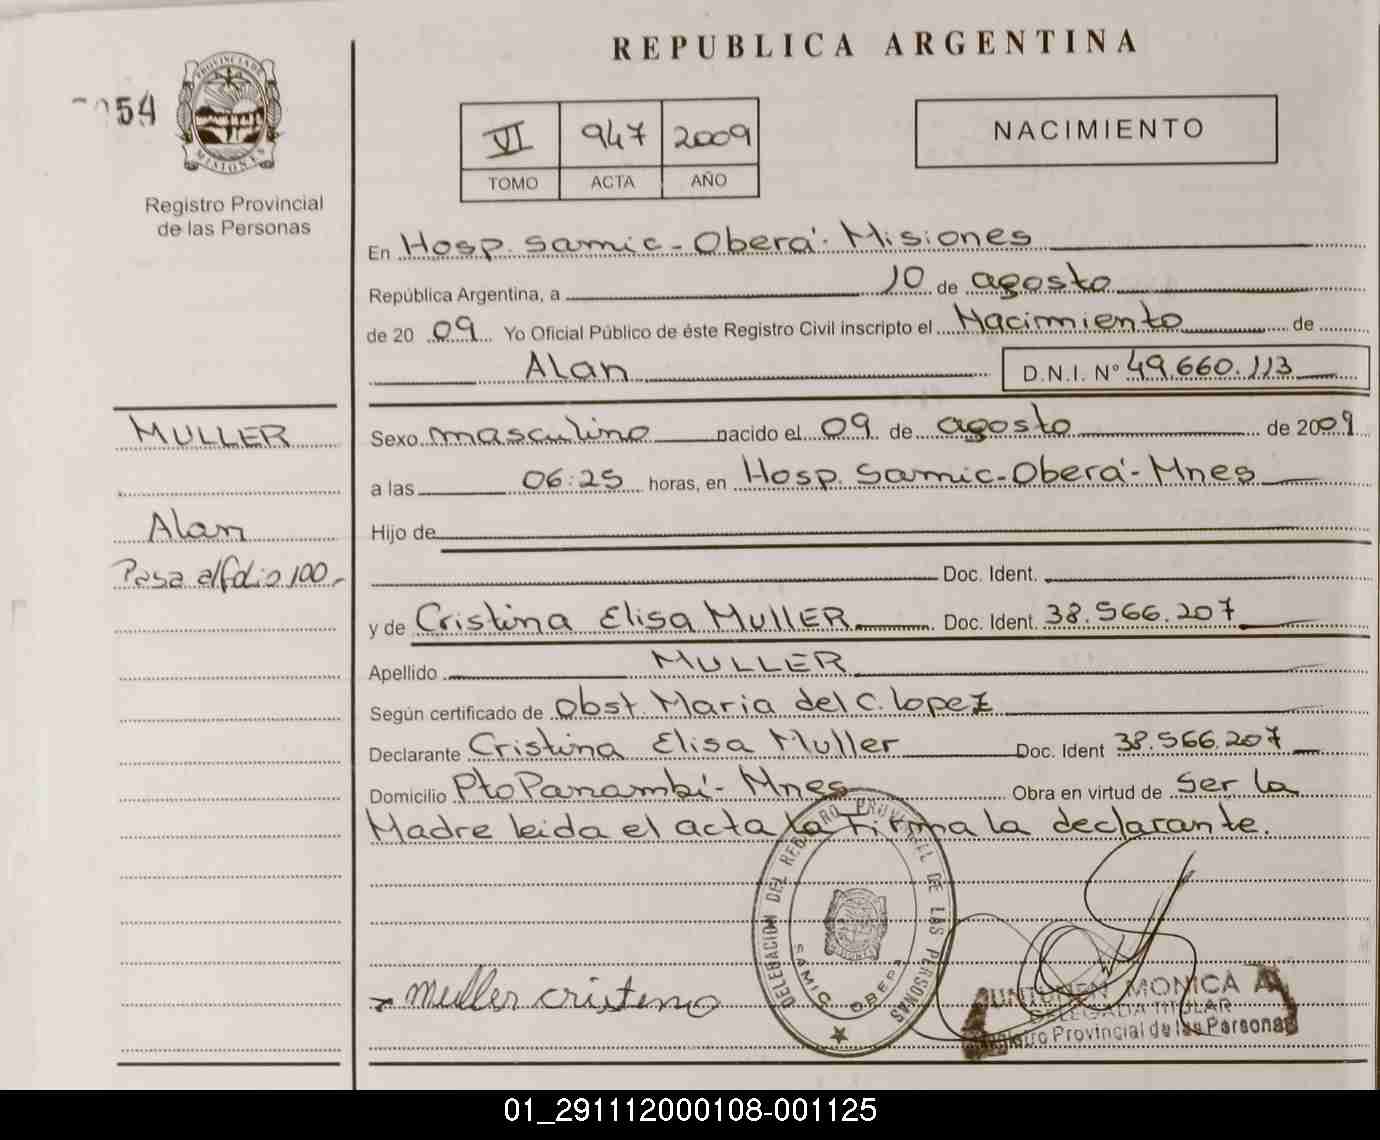 REPUBLICA ARGENTINA
54
PROVINCIA DE
MISIONES
Registro Provincial
de las Personas
VI 947 2009
TOMO ACTA AÑO
NACIMIENTO
En Hosp. Samic - Oberá - Misiones
República Argentina, a 10 de agosto
de 20 09 Yo Oficial Público de éste Registro Civil inscripto el Nacimiento de
Alan D.N.I. N° 49.660.113
MULLER
Alan
Pasa al folio 100.-
Sexo masculino nacido el 09 de agosto de 2009
a las 06:25 horas, en Hosp. Samic - Oberá - Mnes
Hijo de
Doc. Ident.
y de Cristina Elisa MULLER Doc. Ident. 38.566.207
Apellido MULLER
Según certificado de Obst. Maria del C. Lopez
Declarante Cristina Elisa Muller Doc. Ident 38.566.207
Domicilio Pto Panambí - Mnes Obra en virtud de Ser la
Madre leida el acta la firma la declarante.
DELEGACION DEL REGISTRO PROVINCIAL DE LAS PERSONAS
SAMIC OBERA
muller cristina
MONICA A
DELEGADA TITULAR
Registro Provincial de las Personas
01_291112000108-001125